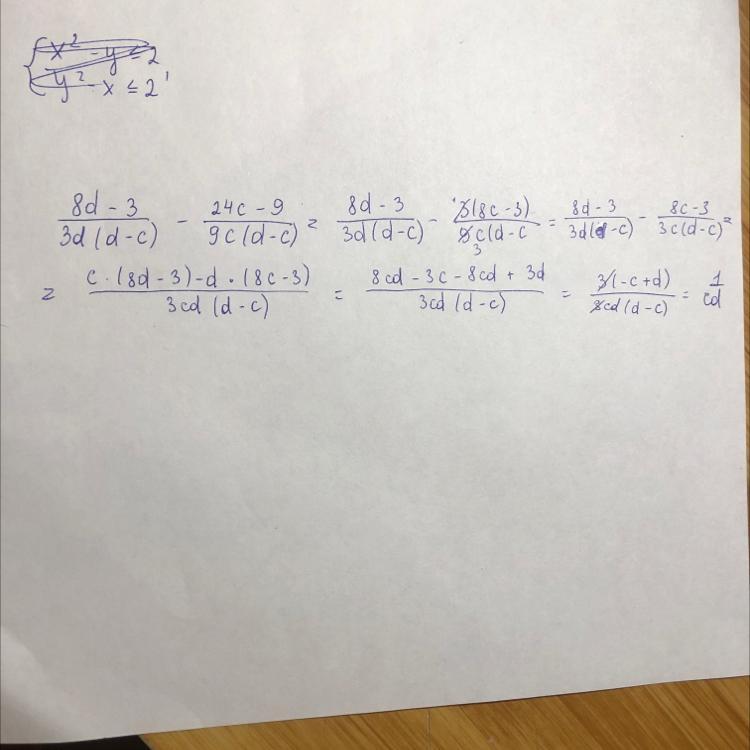 { x² - y ≤ 2
y² - x ≤ 2'
(8d - 3)/(3d(d-c)) - (24c - 9)/(9c(d-c)) = (8d - 3)/(3d(d-c)) - (3(8c-3))/(9c(d-c) = (8d-3)/(3d(d-c)) - (8c-3)/(3c(d-c)) =
= (c·(8d-3)-d·(8c-3))/(3cd(d-c)) = (8cd - 3c - 8cd + 3d)/(3cd(d-c)) = (3(-c+d))/(3cd(d-c)) = 1/cd